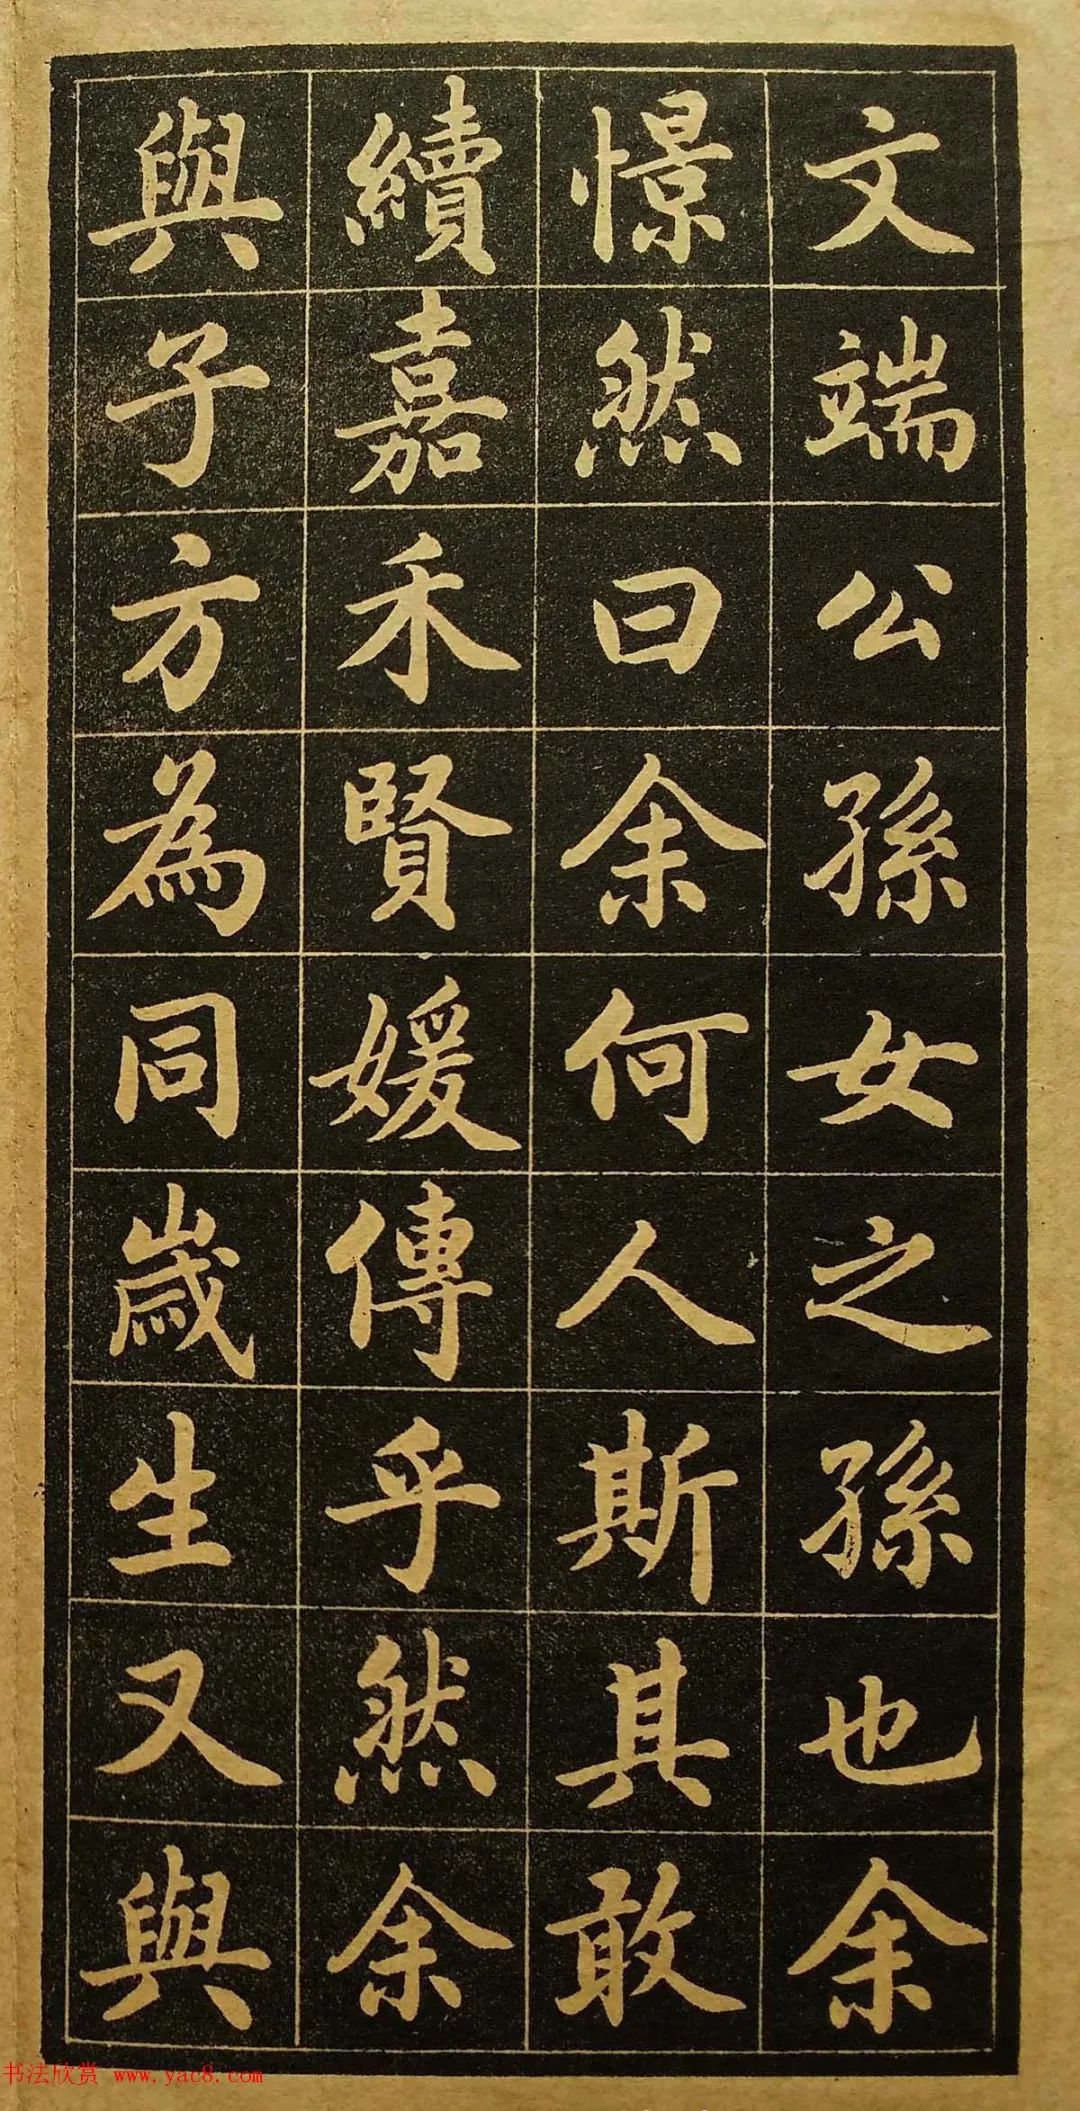 文端公孫女之孫也余
憬然曰余何人斯其敢
續嘉禾賢媛傳乎然余
與子方為同歲生又與
书法欣赏 www.yac8.com